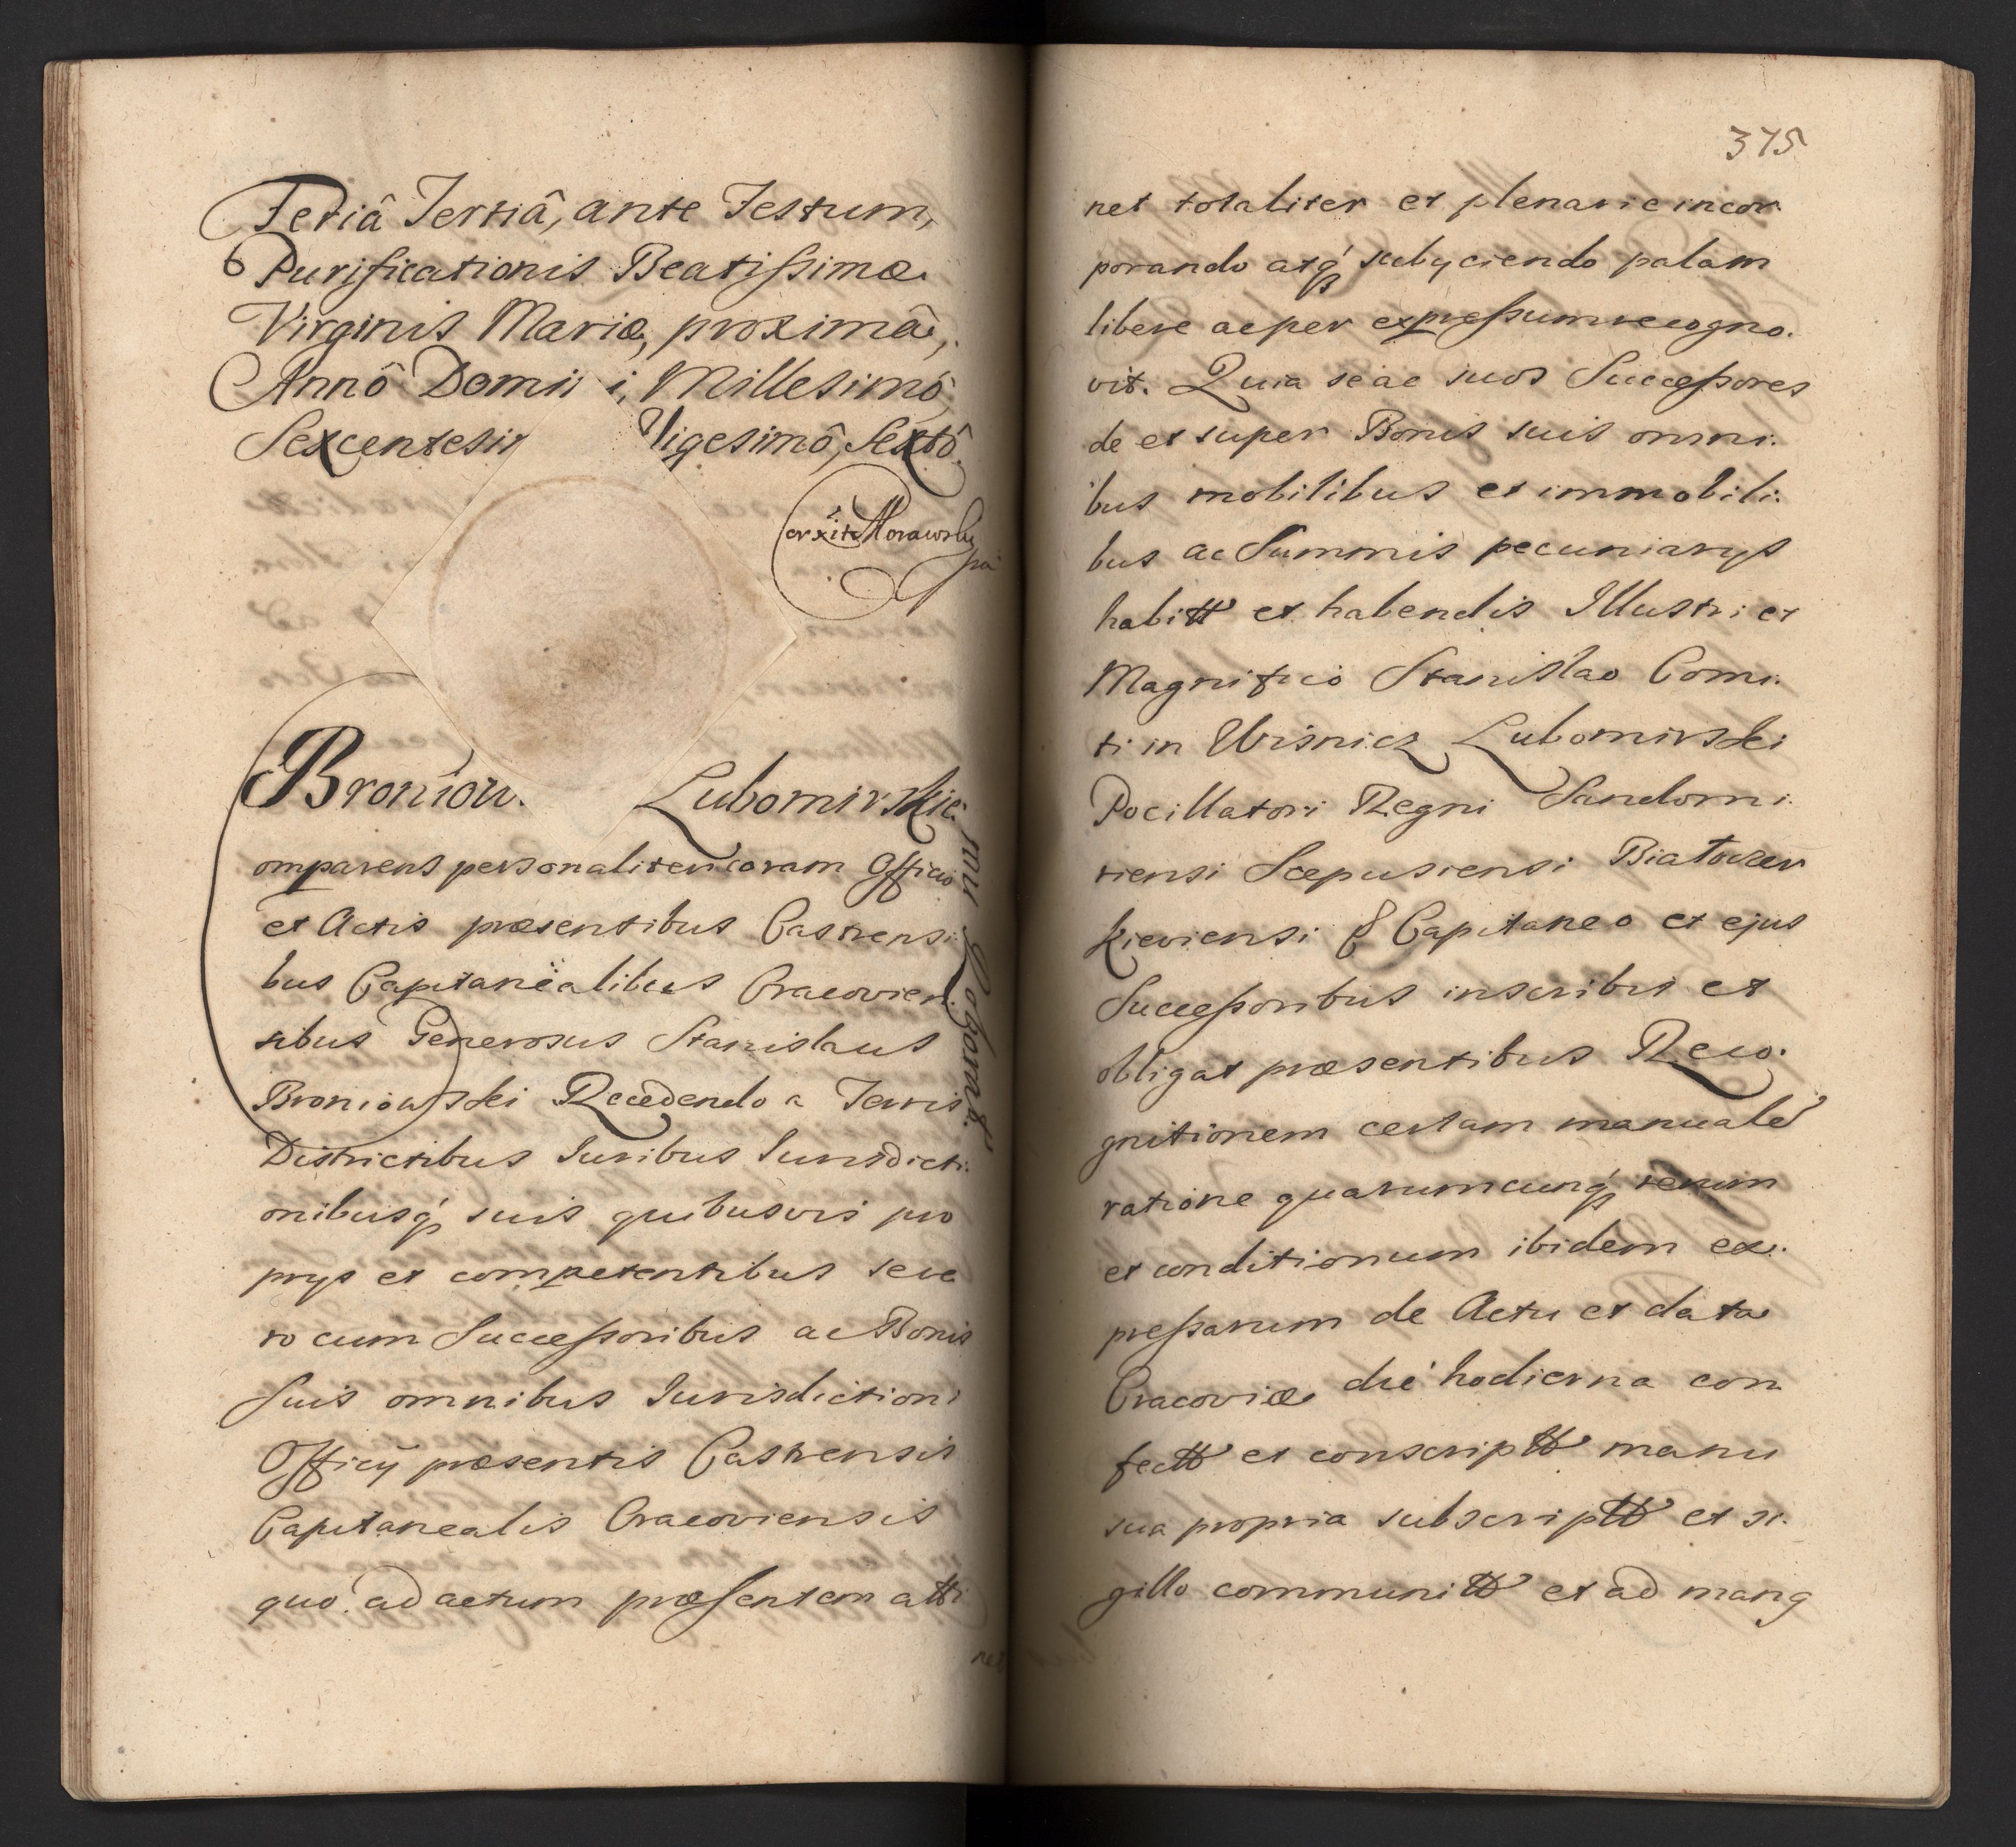 Feriâ Tertiâ, ante Festum,
Purificationis Beatissimæ
Virginis Mariæ, proximâ,
Annô Domini, Millesimô
Sexcentesi Vigesimô, Sextô.
Morawsky
Broniow. Lubomirskie:
omparens personaliter coram Officio
et Actis præsentibus Castrensi:
bus Capitanëalibus Cracovien:
sibus Generosus Stanislaus
Broniowski Recedendo a Terris
Districtibus Iuribus Iurisdicti:
onibusq́ suis quibusvis pro
prijs et competentibus seve
ro cum Successoribus ac Bonis
Suis omnibus Iurisdictioni
Officij præsentis Castrensis
Capitanealis Cracoviensis
quo ad actum præsentem atti
net
375
net totaliter et plenarie incor:
porando atq́ subijciendo palam
libere ac per expressum recogno:
vit. Quia se ac suos Successores
de et super Bonis suis omni:
bus mobilibus et immobili:
bus ac Summis pecuniarijs
habitt et habendis Illustri et
Magnifico Stanislao Comi:
ti in Wisnicz Lubomirski
Pocillatori Regni Sandomi:
riensi Scepusiensi Białocer
kieviensi & Capitaneo et ejus
Successoribus inscribit et
obligat præsentibus Reco:
gnitionem certam manuale
ratione quarumcunq́ rerum
et conditionum ibidem ex:
pressarum de Actu et data
Cracoviæ die hodierna con
fectt et conscriptt manu
sua propria subscriptt et si:
gillo communitt et ad mang